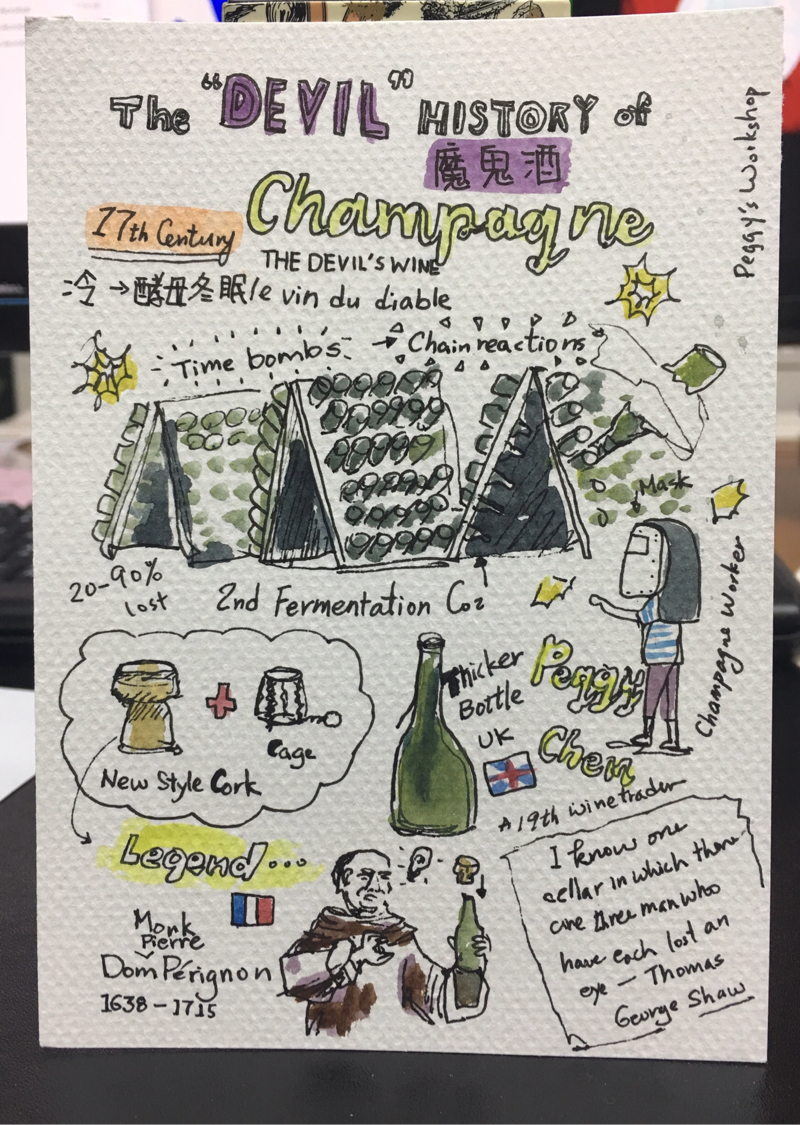 The "DEVIL" HISTORY of
魔鬼酒
Champagne
Peggy's Workshop
17th Century
THE DEVIL'S WINE
冷→酵母冬眠/le vin du diable
Time bombs → Chain reactions
Mask
Champagne Worker
20-90%
lost
2nd Fermentation Co2
New Style Cork
Cage
Thicker
Bottle
UK
Peggy
Chen
Legend...
Monk
Pierre
Dom Pérignon
1638-1715
A 19th wine trader
I know one
cellar in which there
are three man who
have each lost an
eye — Thomas
George Shaw